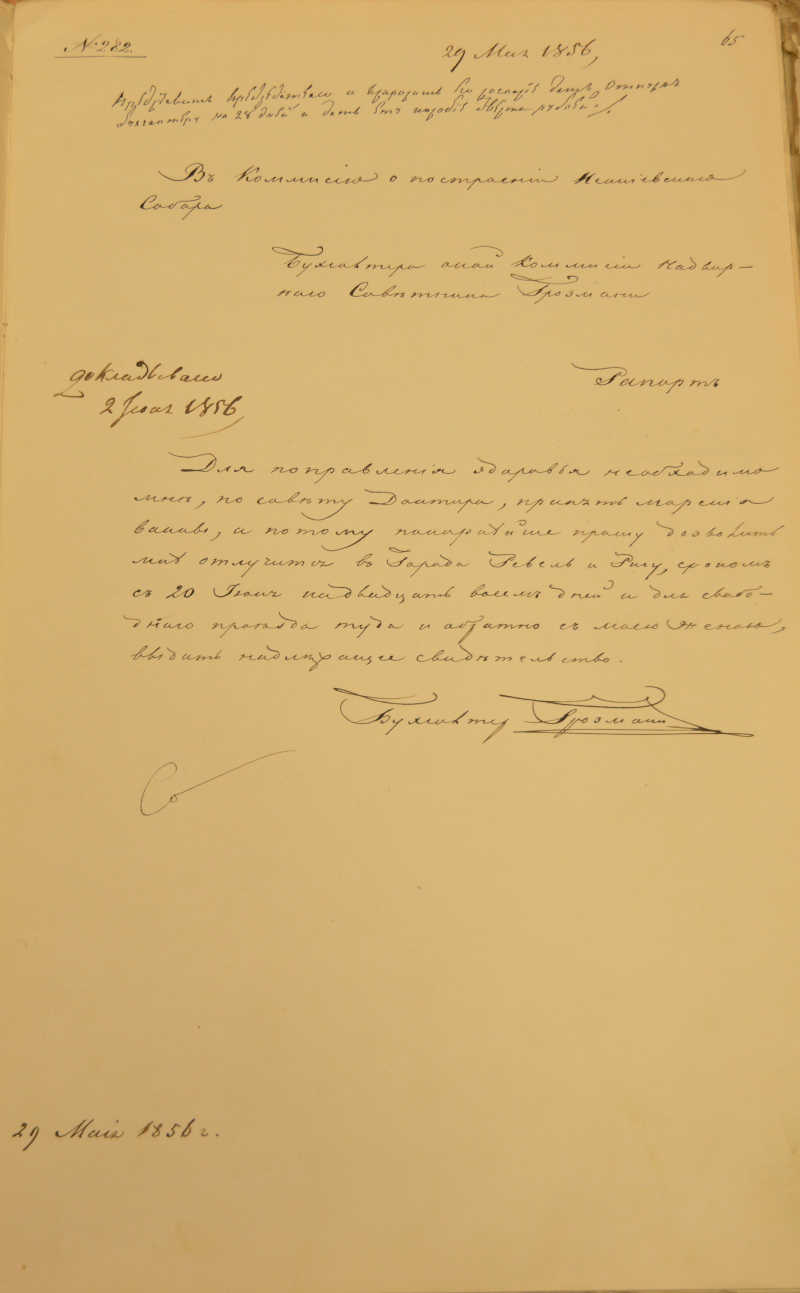 № 282.
29 Мая 1856,
65
на 28 дней и
Въ Коммисію о построеніи Исакіевскаго
Собора
Бухгалтера оной Коммисіи Надвор-
наго Советника Грозмани
докладывано
2 Июня 1856
Рапортъ
Для поправленія здоровья необходимо
мнѣ, по совѣту Доктора, принять морскія
ванны, а потому покорнѣйше прошу дозволить
мнѣ отлучится въ Города Ревель и Ригу, срокомъ
съ 20 Іюня на двадцать восемь дней и для свобод-
днаго проѣзда туда и обратно съ моею женою,
выдать надлежащее свидѣтельство.
Бухгалтеръ Грозмани
29 Мая 1856 г.